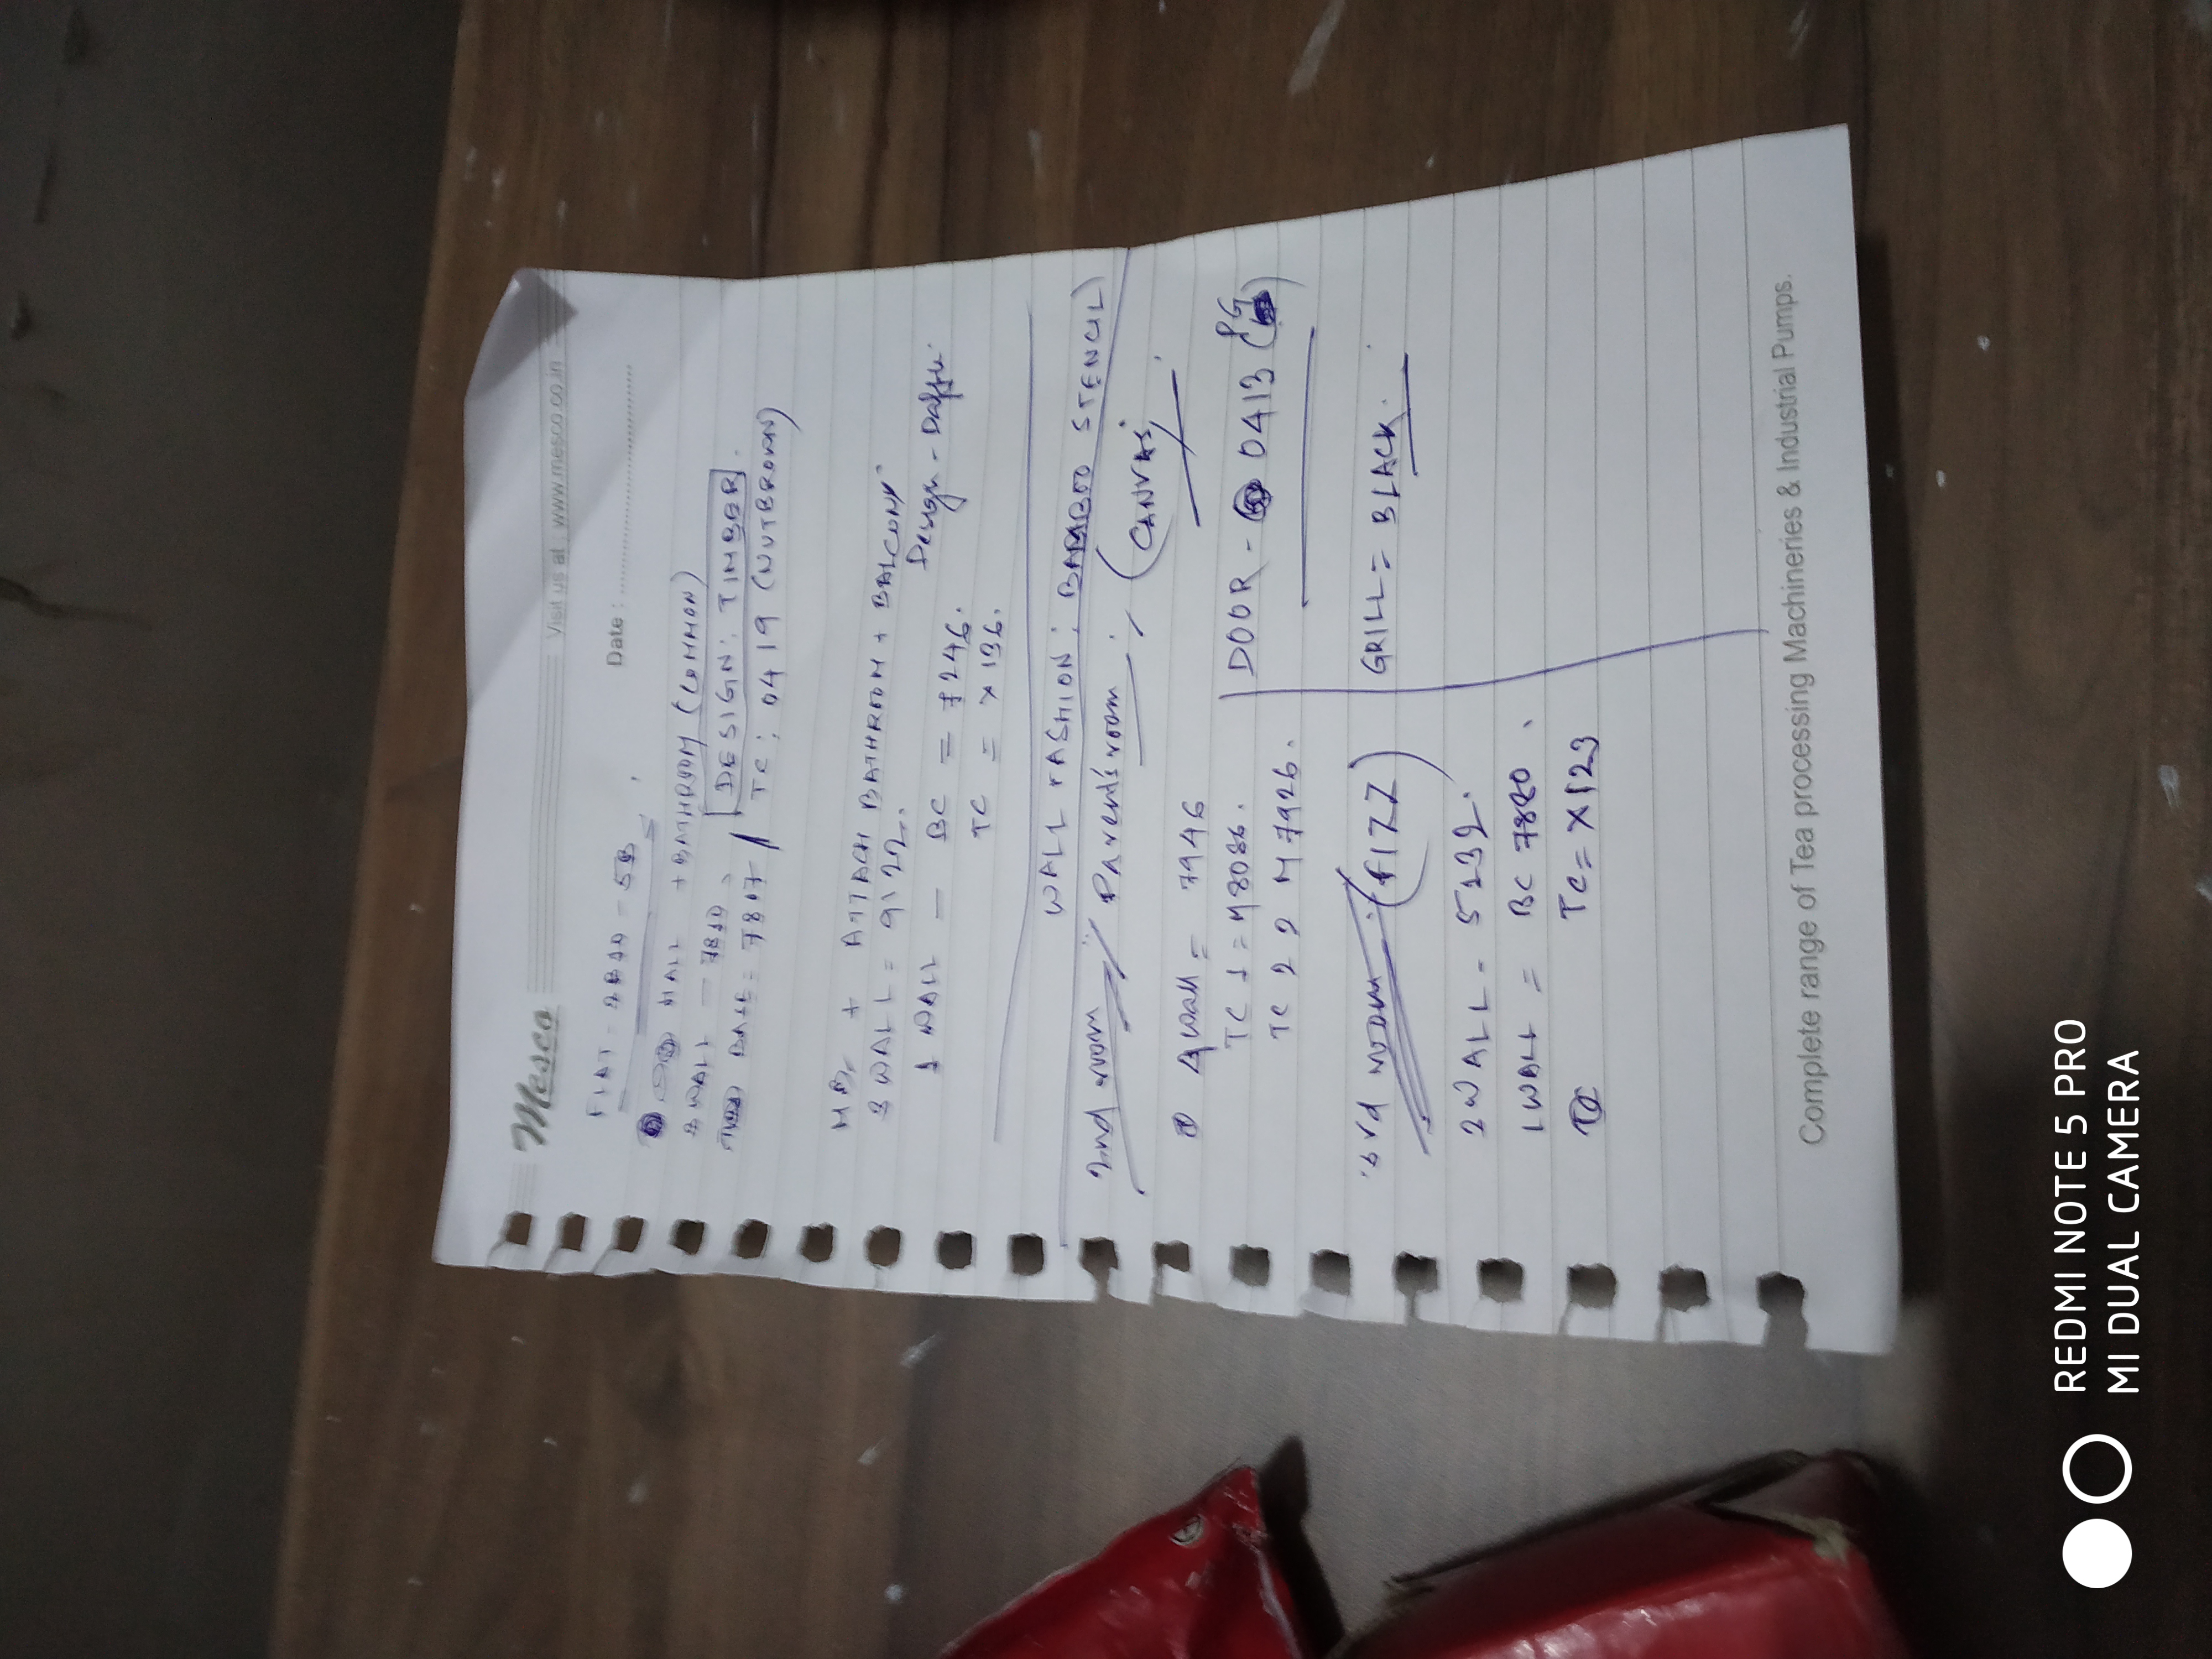 Mesco
Visit us at : www.mesco.co.in
Date :
FLAT - - 5B
HALL + BATHROOM (COMMON)
3 WALL - 7810. DESIGN: TIMBER
BASE = 7817 / TC: 0419 (NUTBROWN)
MB + ATTACH BATHROOM + BALCONY
3 WALL = 9122.
Design -
1 WALL - BC = 7246.
TC = X 136.
WALL FASHION: BAMBOO STENCIL)
2nd room Parent's room (CANVAS)
Wall = 7946
TC 1 = M8086.
TC 2 = M7926.
DOOR - 0413 (PG)
3rd room (FIZZ)
GRILL = BLACK.
WALL - 5132.
1 WALL = BC 7880
TC = X123
Complete range of Tea processing Machineries & Industrial Pumps.
REDMI NOTE 5 PRO
MI DUAL CAMERA